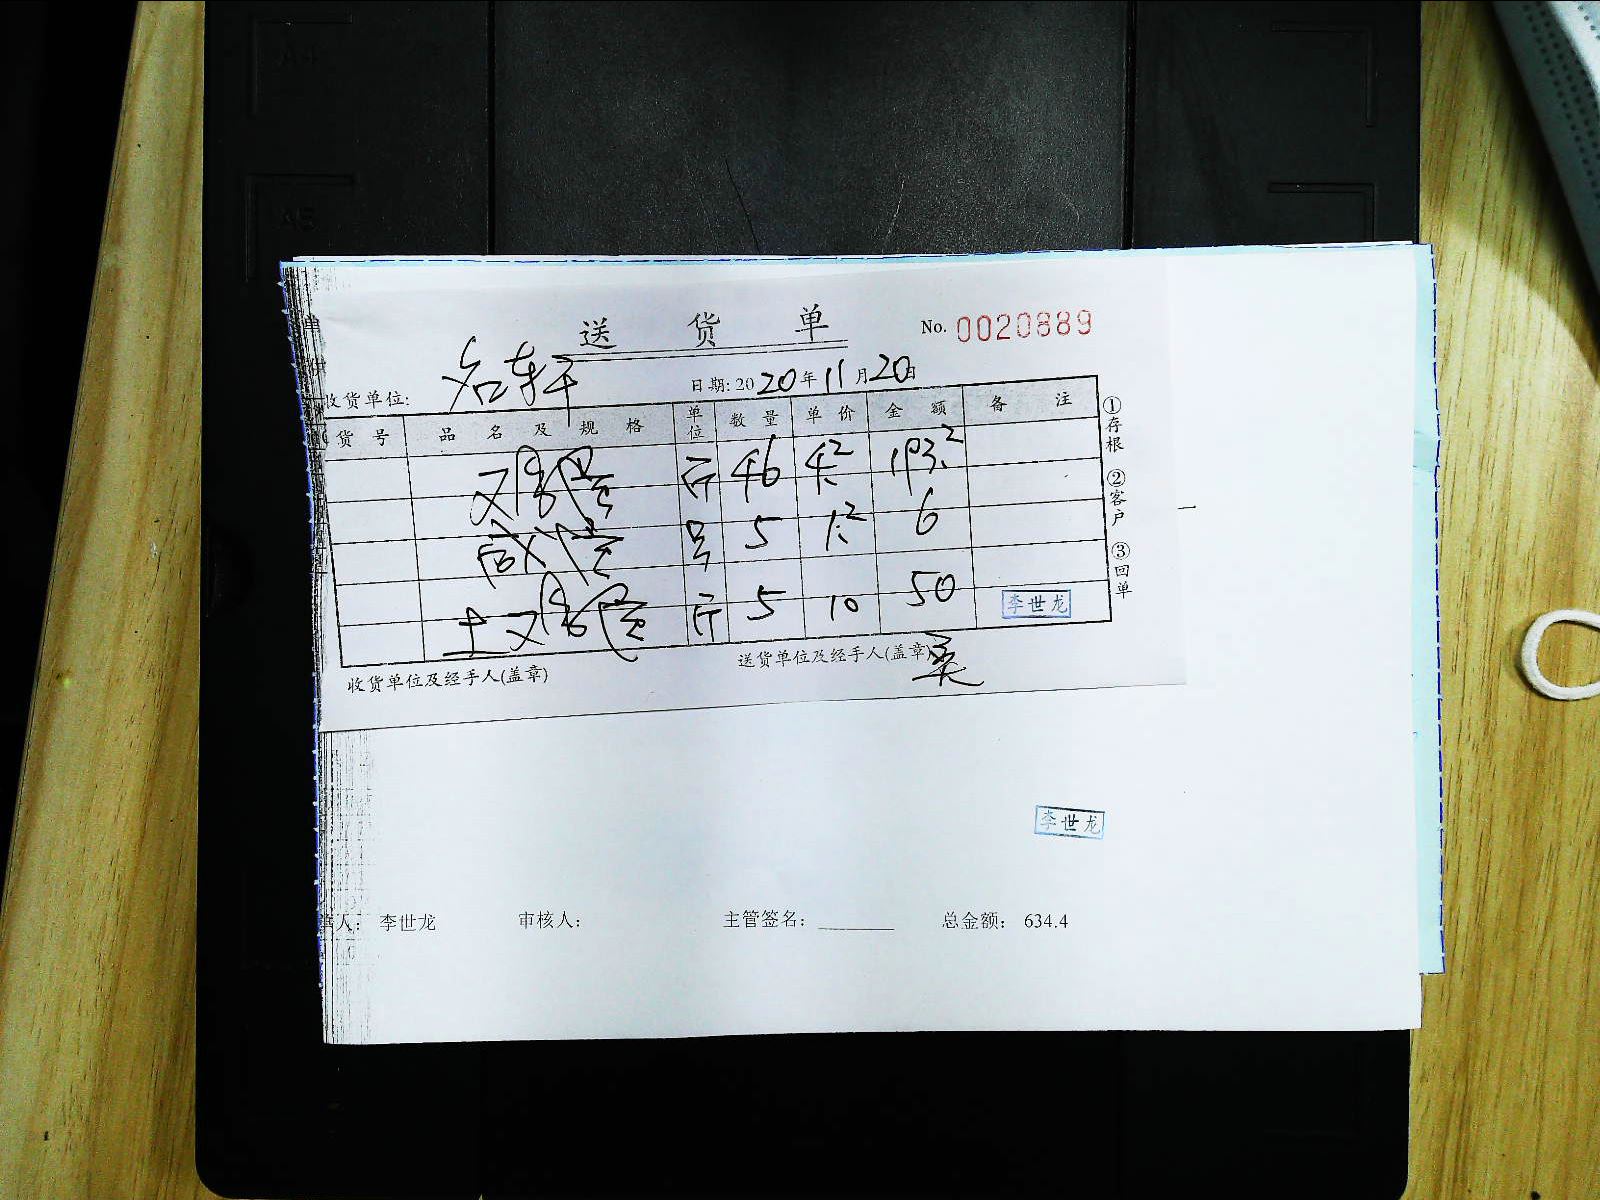 送 货 单
No. 0020889
收货单位: 名轩
日期: 2020年11月20日
货号 品名及规格 单位 数量 单价 金额 备注
又鸡蛋 斤 46 4.2 193.2
咸蛋 5 1.2 6
土鸡蛋 斤 5 10 50
李世龙
①存根 ②客户 ③回单
收货单位及经手人(盖章)
送货单位及经手人(盖章)
李世龙
单人: 李世龙 审核人: 主管签名: 总金额: 634.4